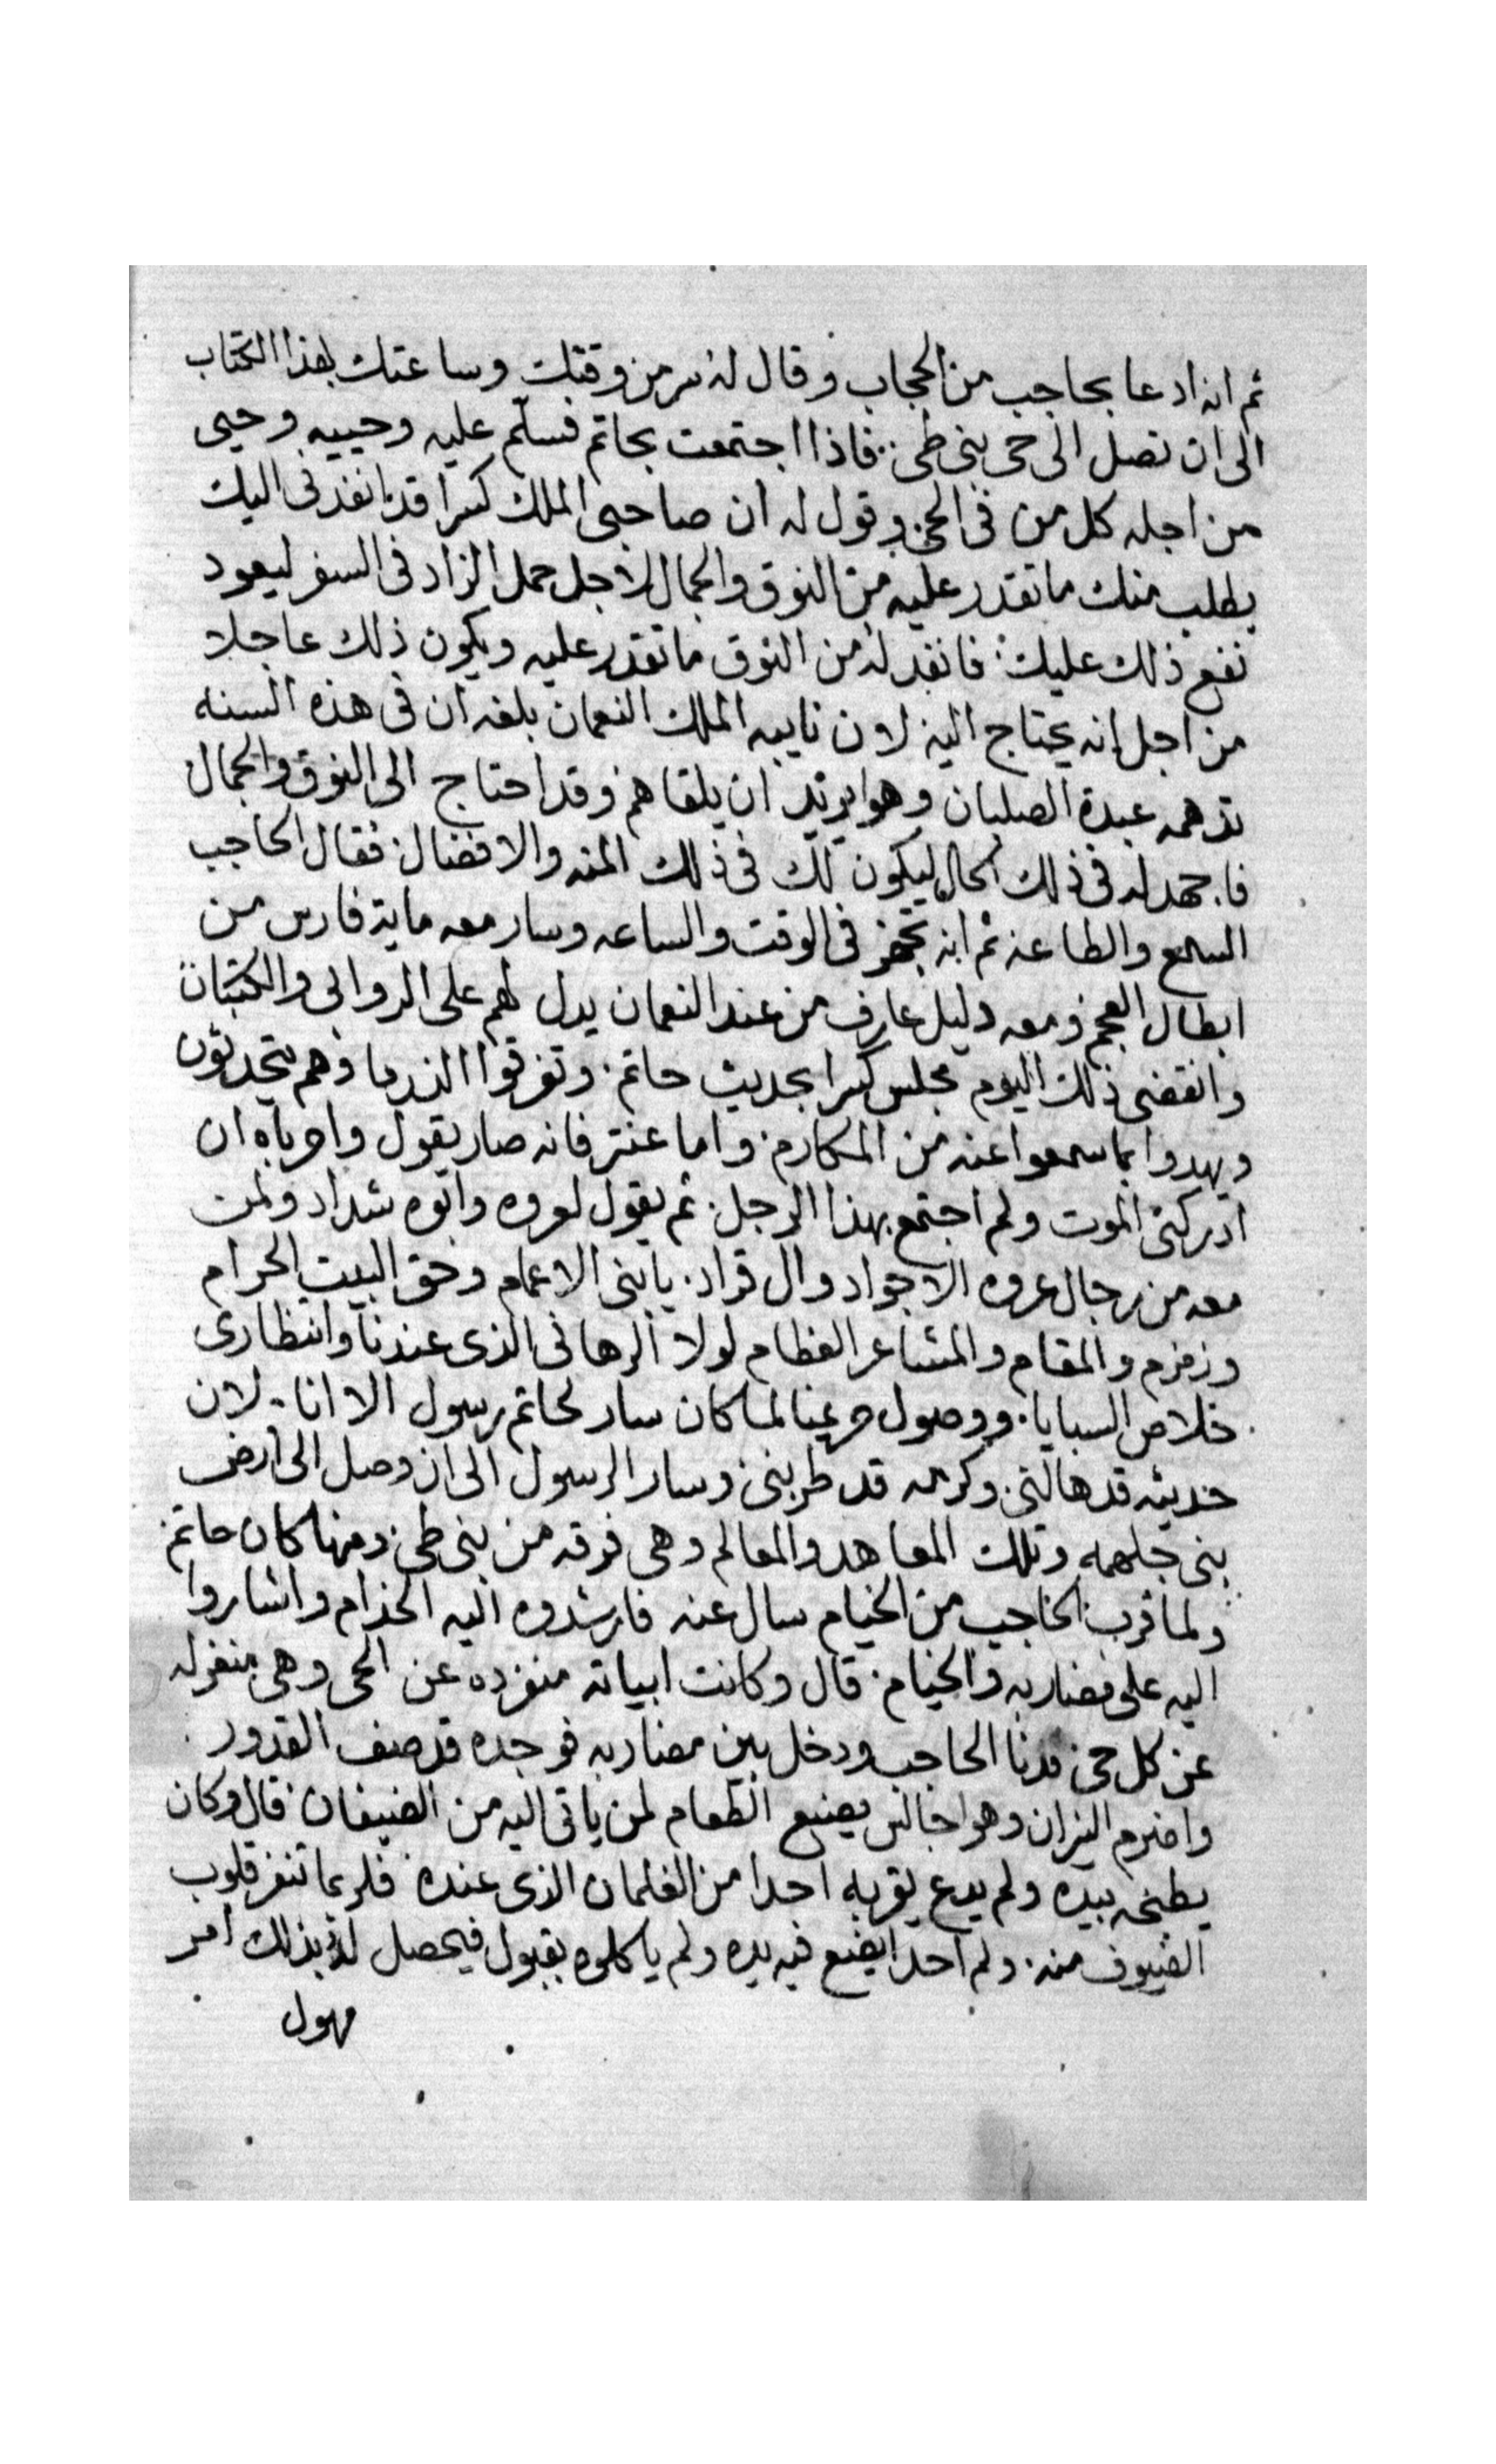 ثم انه ادعا بحاجب من الحجاب وقال له سر من وقتك وساعتك بهذا الكتاب
الى ان تصل الى حى بنى طى فاذا اجتمعت بحاتم فسلم عليه وحييه وحيى
من اجله كل من فى الحى وقول له ان صاحبى الملك كسرا قد انفدنى اليك
يطلب منك ما تقدر عليه من النوق والجمال لاجل حمل الزاد فى السفر ليعود
نفع ذلك عليك فانفد له من النوق ما تقدر عليه ويكون ذلك عاجلا
من اجل انه يحتاج اليه لان نايبه الملك النعمان بلغه ان فى هذه السنه
تدهمه عبدة الصلبان وهوا يريد ان يلقاهم وقد احتاج الى النوق والجمال
فاجهد له فى ذلك الحال ليكون لك فى ذلك المنه والافضال فقال الحاجب
السمع والطاعه ثم انه تجهز فى الوقت والساعه وسار معه ماية فارس من
ابطال العجم ومعه دليل عارف من عند النعمان يدل لهم على الروابى والكتبان
وانقضى ذلك اليوم مجلس كسرا بحديث حاتم وتفرقوا الوزرا وهم يتحدثون
ويهدوا بما سمعوا عنه من المكارم واما عنتر فانه صار يقول واحرباه ان
ادركنى الموت ولم اجتمع بهذا الرجل ثم يقول لعروه وابوه شداد ولمن
معه من رجال عروه الاجواد وال قراد يا بنى الاعمام وحق البيت الحرام
وزمزم والمقام والمشاعر العظام لولا الرهانى الذى عندنا وانتظارى
خلاص السبايا ووصول حريمنا لما كان سار لحاتم رسول الا انا لان
حديثه قد هالنى وكرمه قد طربنى وسار الرسول الى ان وصل الى ارض
بنى جلهمه وتلك المعاهد والمعالم وهى فرقه من بنى طى ومنها كان حاتم
ولما قرب الحاجب من الخيام سال عنه فارشدوه اليه الخدام واشاروا
اليه على مضاربه والخيام قال وكانت ابياته منفرده عن الحى وهى منعزله
عن كل حى فدنا الحاجب ودخل بين مضاربه فوجده قد صف القدور
واضرم النيران وهوا جالس يصنع الطعام لمن ياتى اليه من الضيفان قال وكان
يطبخه بيده ولم يدع يقربه احدا من الغلمان الذى عنده فلربما تنفر قلوب
الضيوف منه ولم احدا يضع فيه يده ولم ياكلوه بقبول فيحصل له بذلك امر
مهول